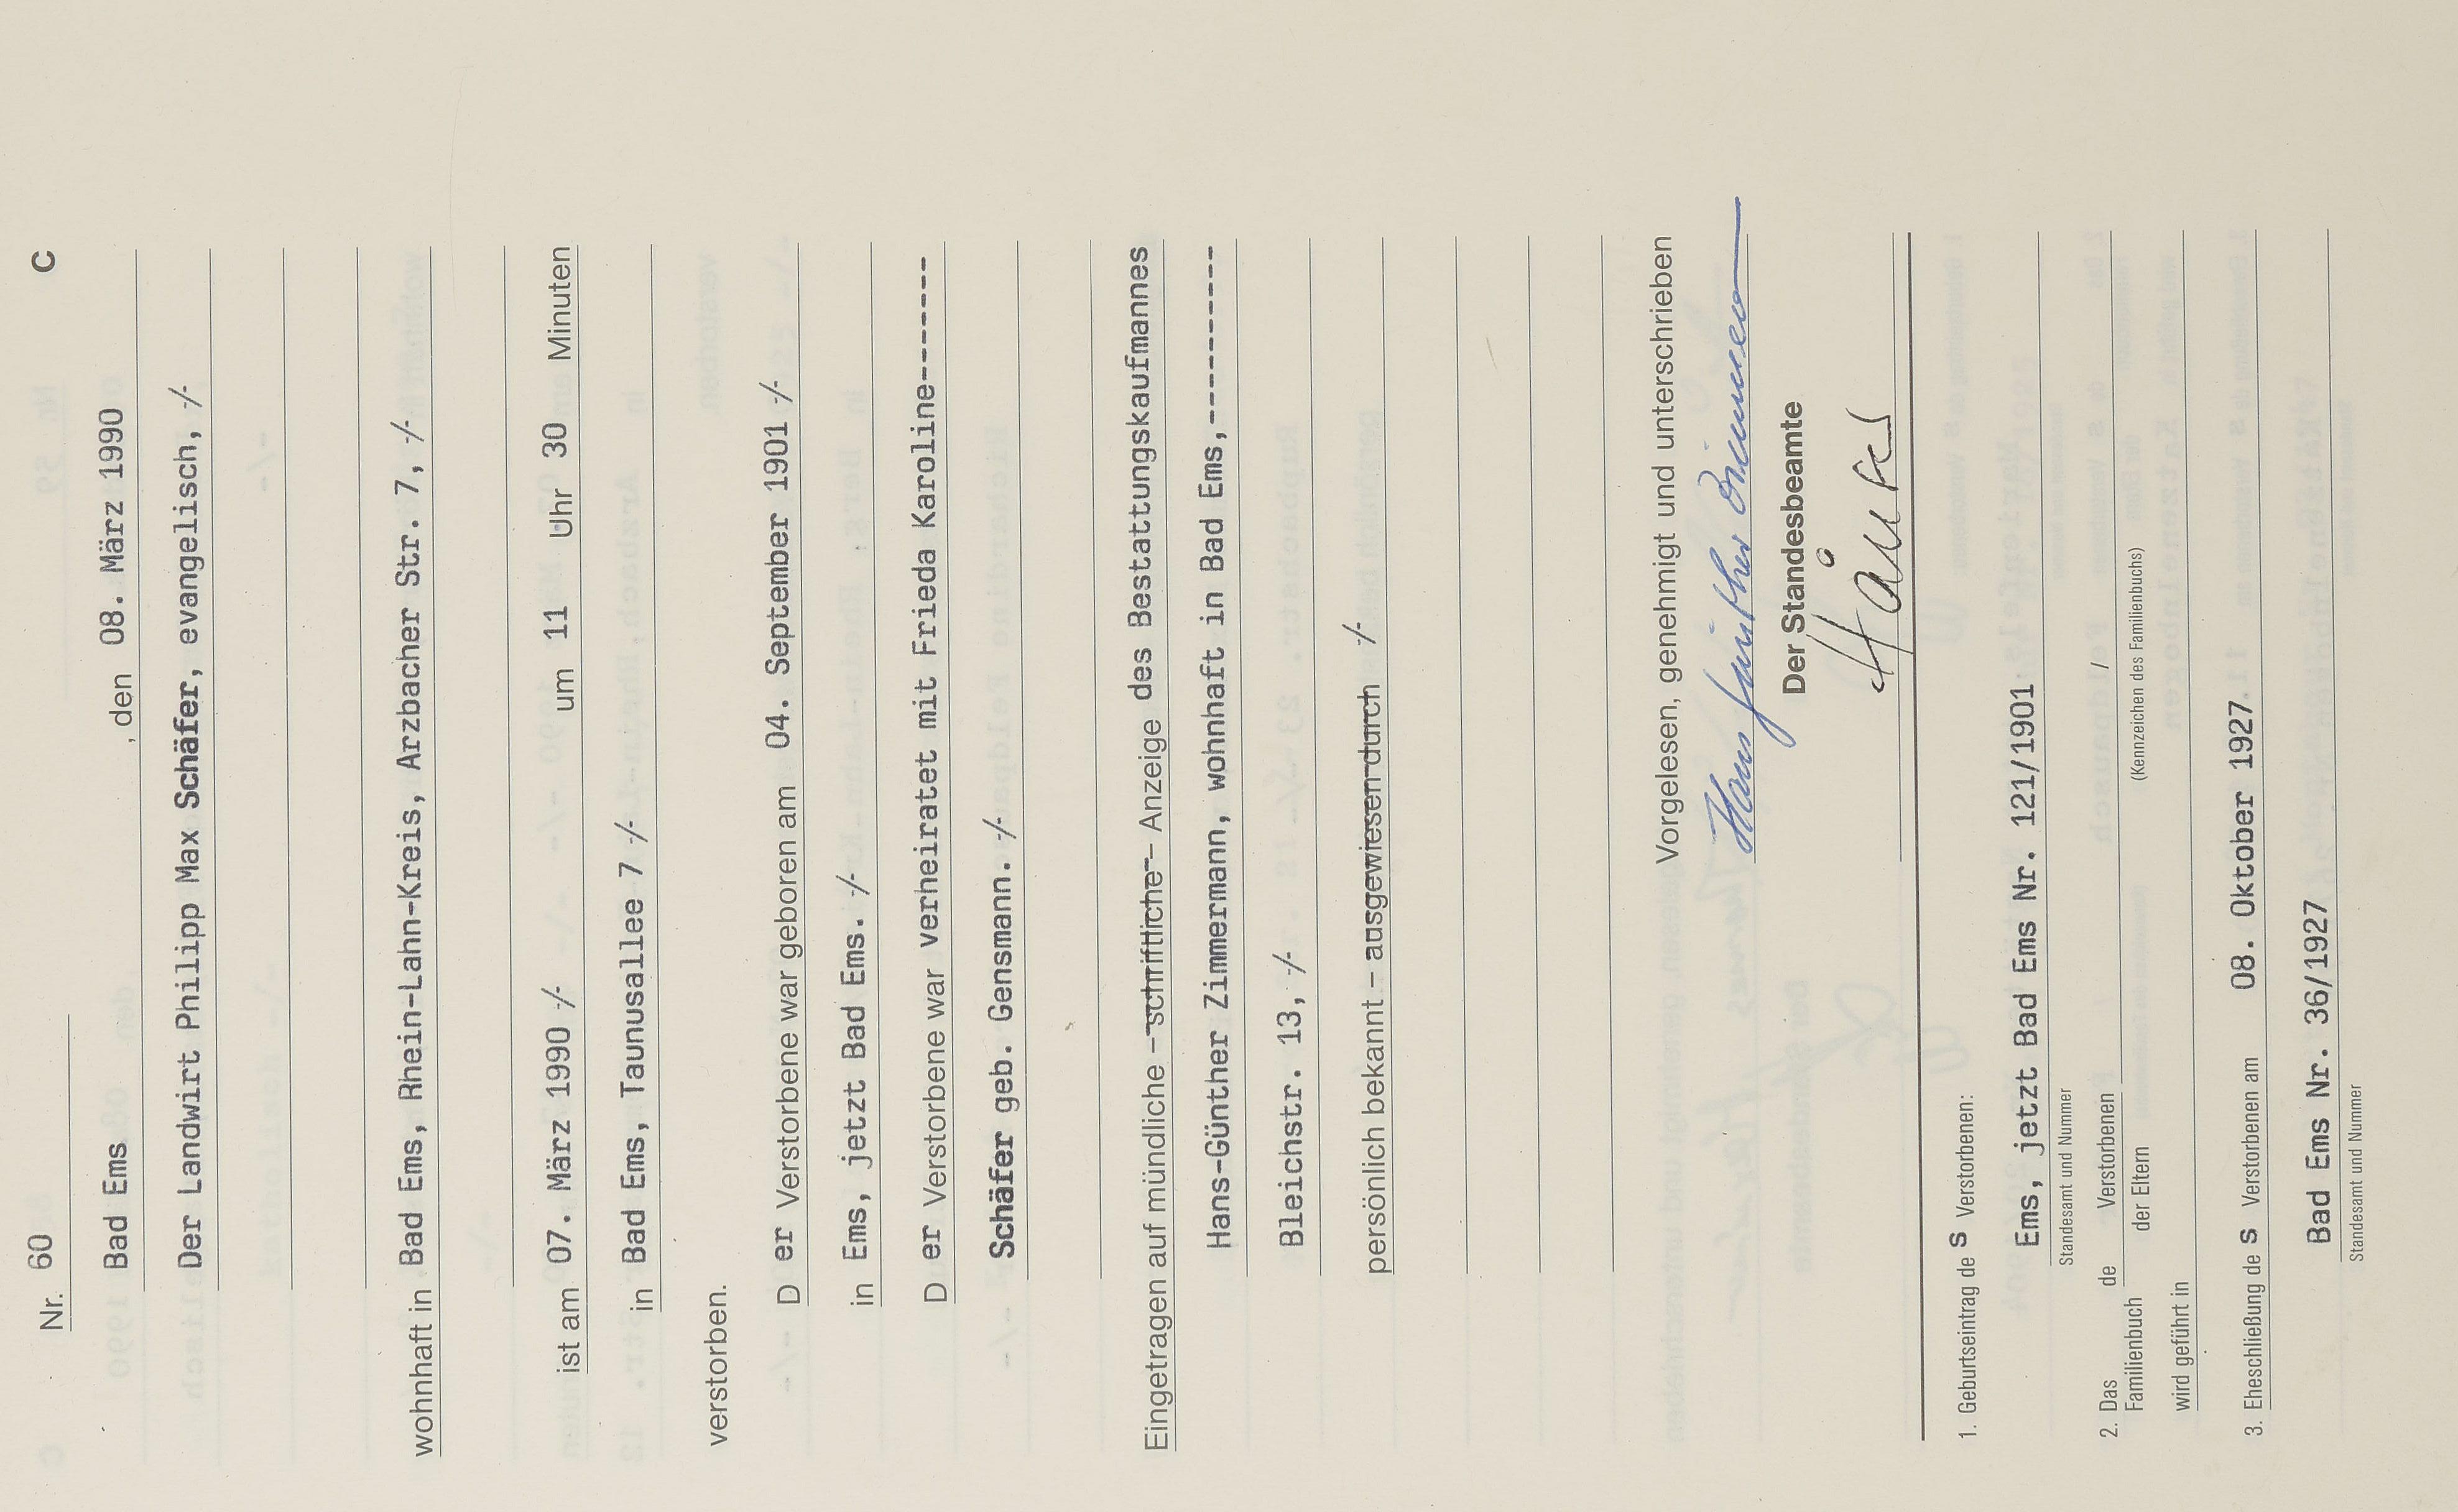 Nr. 60 C
Bad Ems , den 08. März 1990
Der Landwirt Philipp Max Schäfer, evangelisch, -/-
wohnhaft in Bad Ems, Rhein-Lahn-Kreis, Arzbacher Str. 7, -/-
ist am 07. März 1990 -/- um 11 Uhr 30 Minuten
in Bad Ems, Taunusallee 7 -/-
verstorben.
D er Verstorbene war geboren am 04. September 1901 -/-
in Ems, jetzt Bad Ems. -/-
D er Verstorbene war verheiratet mit Frieda Karoline--------
Schäfer geb. Gensmann. -/-
Eingetragen auf mündliche – schriftliche – Anzeige des Bestattungskaufmannes
Hans-Günther Zimmermann, wohnhaft in Bad Ems,-----------
Bleichstr. 13, -/-
persönlich bekannt – ausgewiesen durch -/-
Vorgelesen, genehmigt und unterschrieben
Hans Günther Zimmermann
Der Standesbeamte
1. Geburtseintrag de s Verstorbenen:
Ems, jetzt Bad Ems Nr. 121/1901
Standesamt und Nummer
2. Das Familienbuch de Verstorbenen / der Eltern
(Kennzeichen des Familienbuchs)
wird geführt in
3. Eheschließung de s Verstorbenen am 08. Oktober 1927
Bad Ems Nr. 36/1927
Standesamt und Nummer